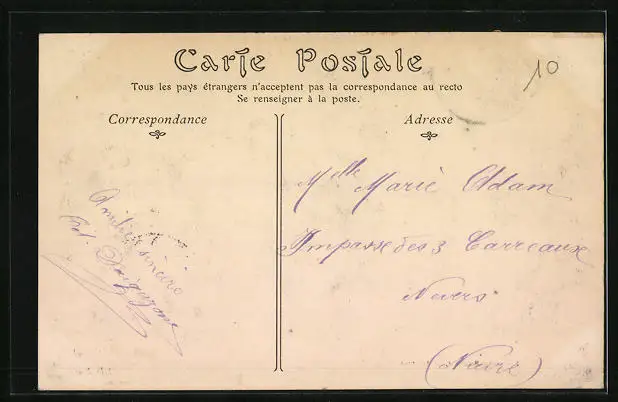 Carte Postale
Tous les pays étrangers n'acceptent pas la correspondance au recto
Se renseigner à la poste.
Correspondance
Adresse
10
Melle Marie Adam
Impasse des 3 Carreaux
Nevers
(Nièvre)
sincère